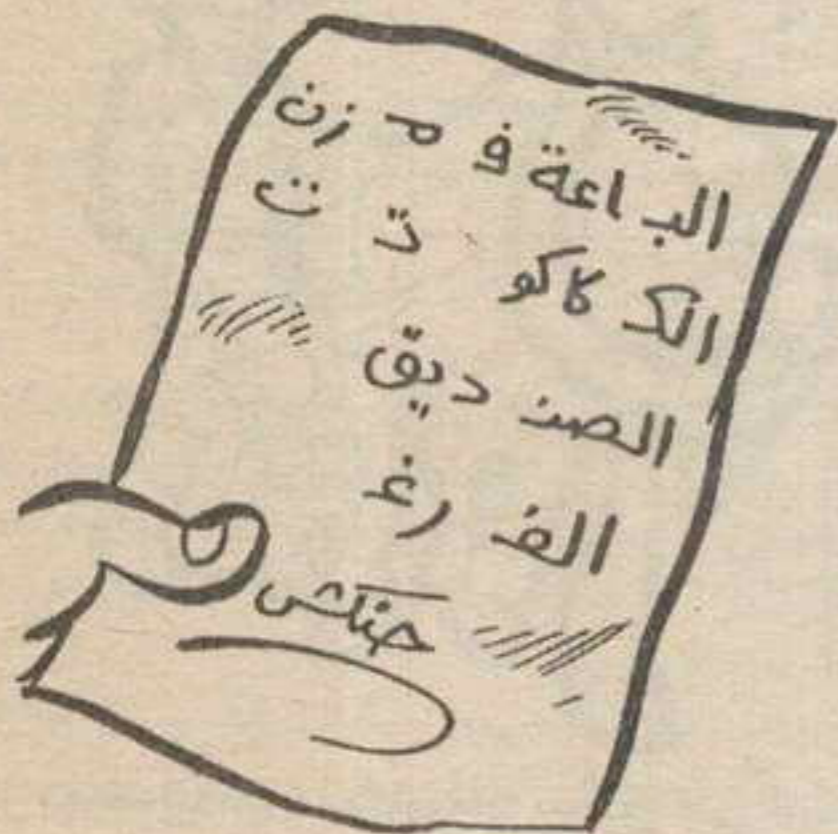 الب اعة ف م زن
الك كاكو ت ت
الصن ديق
الف رغ
حنكش